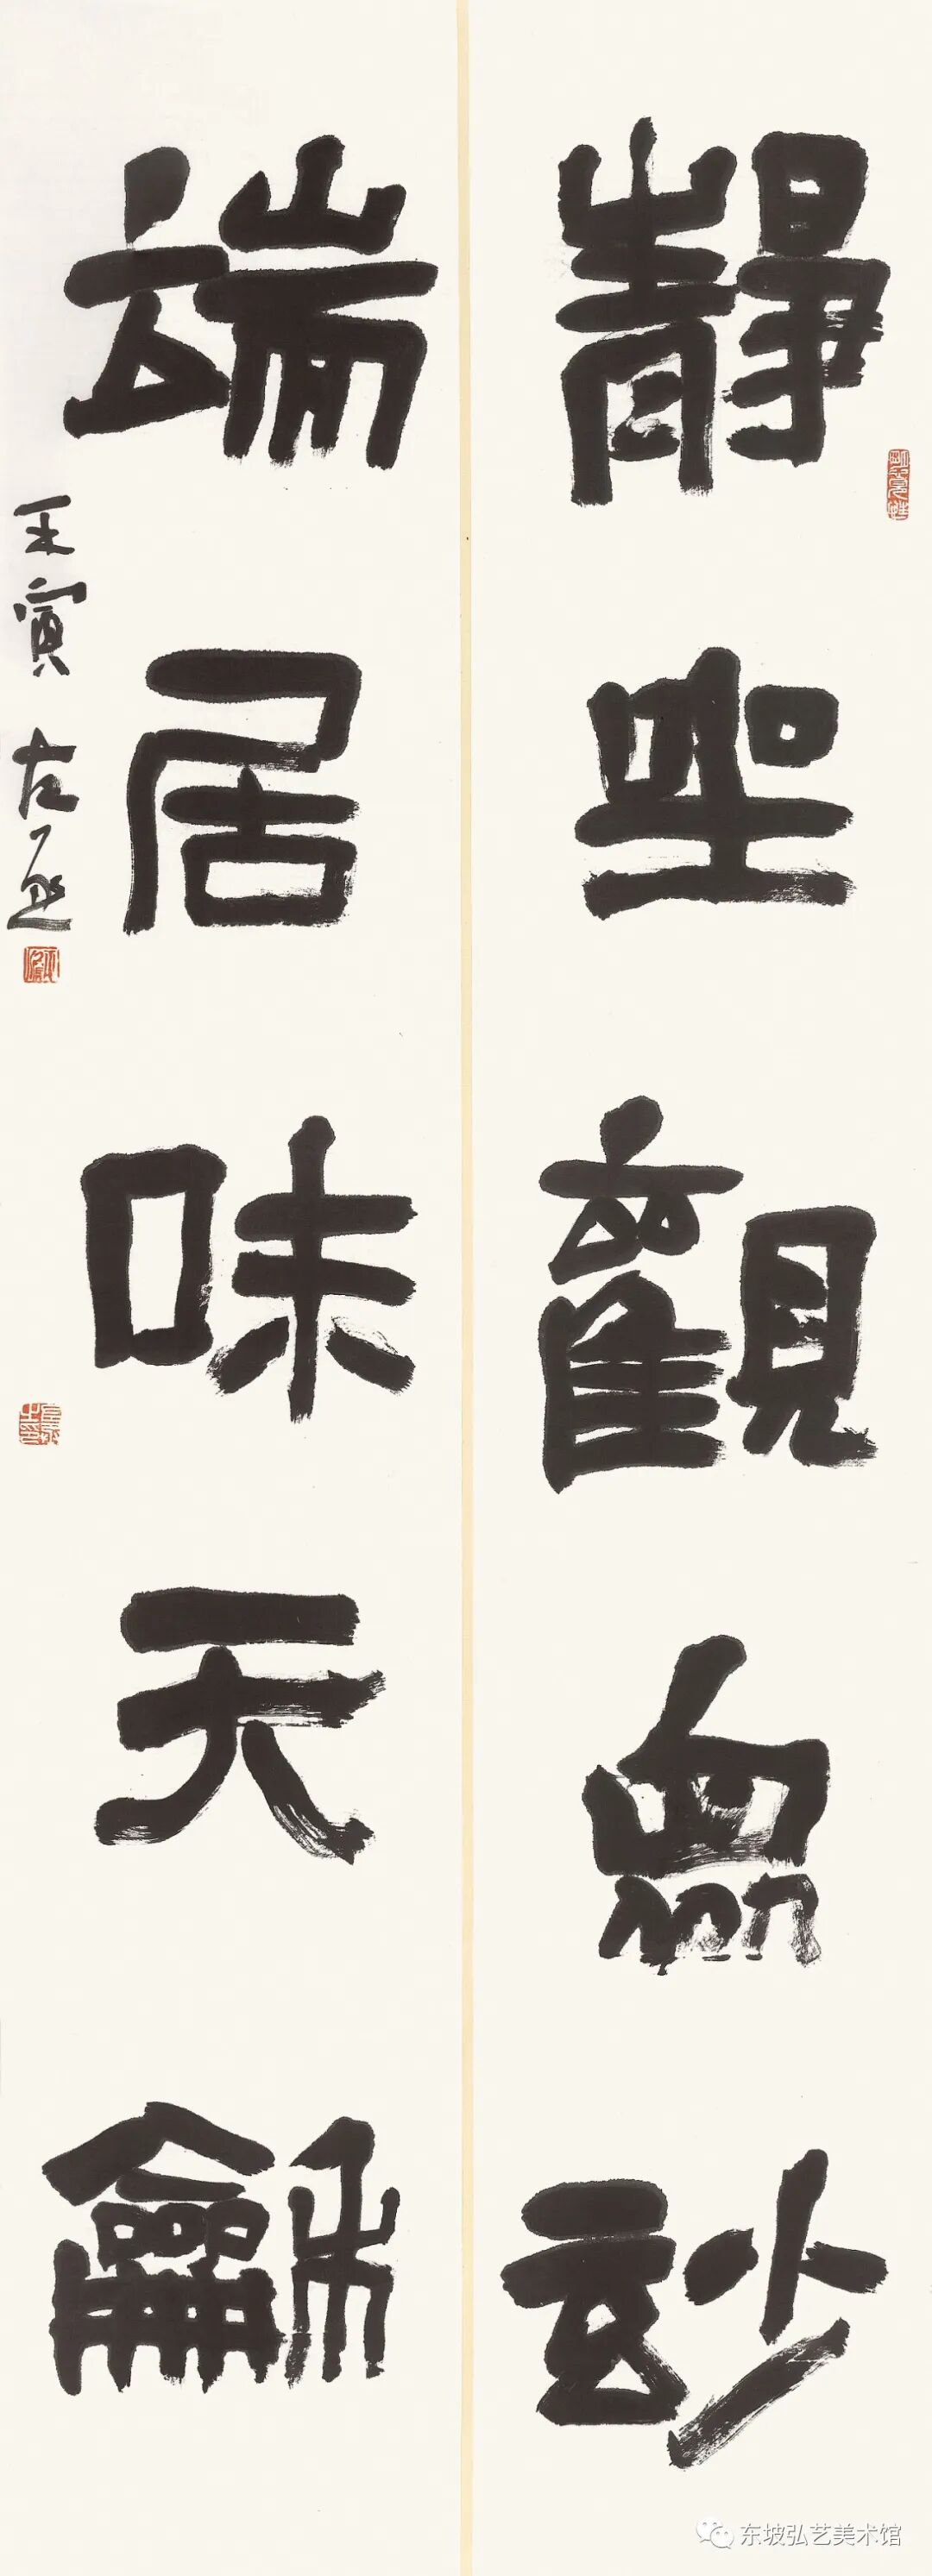 靜坐觀眾玅
端居味天龢
壬寅 左
东坡弘艺美术馆